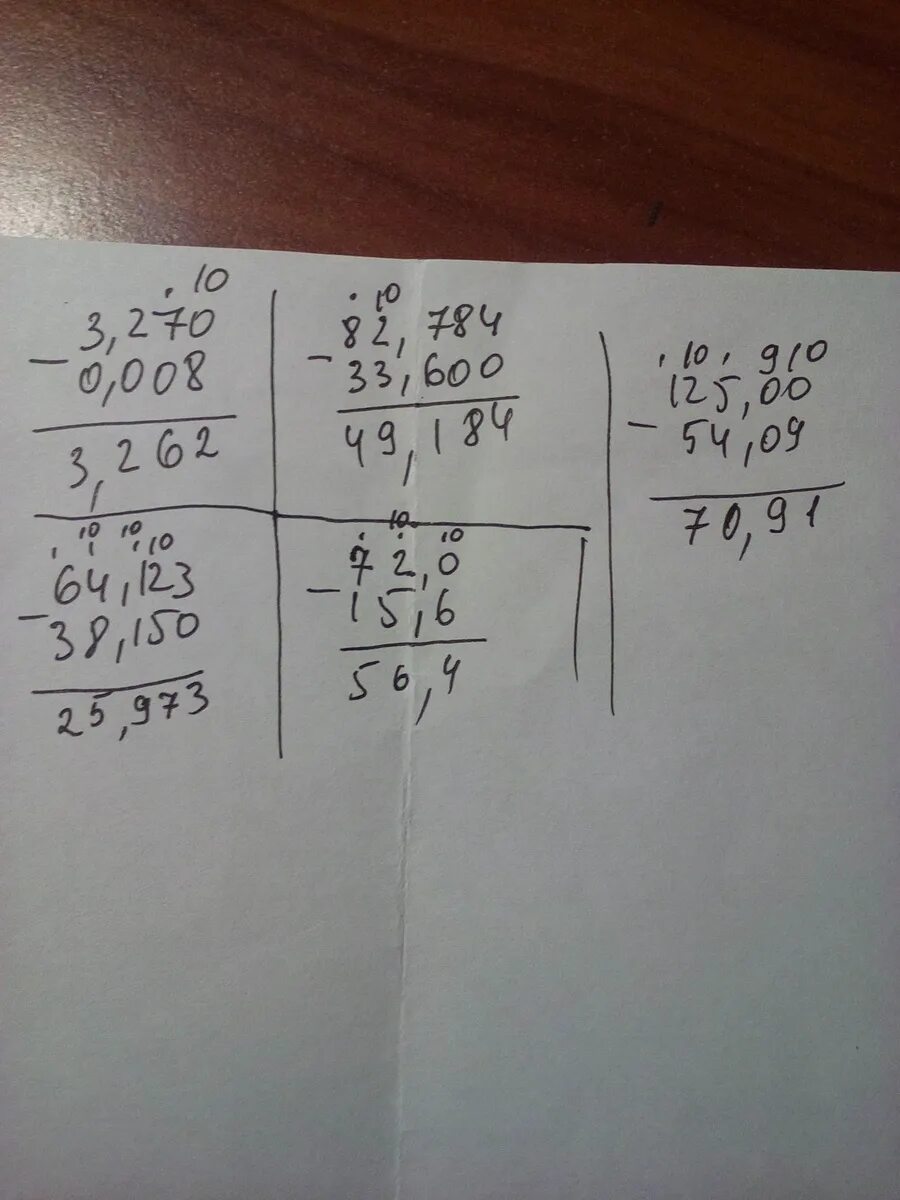 . 10
3,270
−
0,008
3,262
. 10
82,784
−
33,600
49,184
. 10 . 9 10
125,00
−
54,09
70,91
. 10 10 . 10
64,123
−
38,150
25,973
. 10 . 10
72,0
−
15,6
56,4